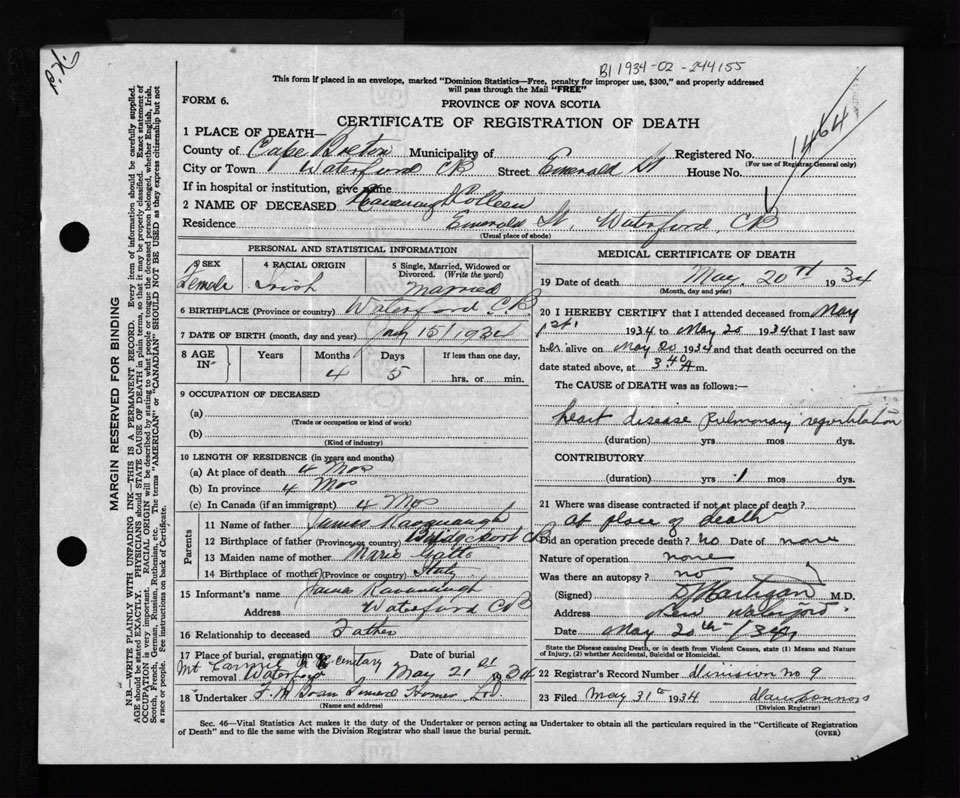 P.K.
B1 1934-02-244155
This form if placed in an envelope, marked "Dominion Statistics—Free, penalty for improper use, $300," and properly addressed
will pass through the Mail "FREE"
FORM 6.
PROVINCE OF NOVA SCOTIA
CERTIFICATE OF REGISTRATION OF DEATH
1464
1 PLACE OF DEATH—
County of Cape Breton Municipality of Registered No.
(For use of Registrar General only)
City or Town Waterford CB Street Emerald St House No.
If in hospital or institution, give name
2 NAME OF DECEASED Kavanaugh Colleen
Residence Emerald St. Waterford, CB
(Usual place of abode)
PERSONAL AND STATISTICAL INFORMATION
3 SEX 4 RACIAL ORIGIN 5 Single, Married, Widowed or Divorced. (Write the word)
Female Irish Married
6 BIRTHPLACE (Province or country) Waterford CB
7 DATE OF BIRTH (month, day and year) Jany 15/1934
8 AGE IN- Years Months Days If less than one day,
4 5 hrs. or min.
9 OCCUPATION OF DECEASED
(a)
(Trade or occupation or kind of work)
(b)
(Kind of industry)
10 LENGTH OF RESIDENCE (in years and months)
(a) At place of death 4 Mos
(b) In province 4 Mos
(c) In Canada (if an immigrant) 4 Mos
Parents
11 Name of father James Kavanaugh
12 Birthplace of father (Province or country) Bridgeport CB
13 Maiden name of mother Marie Gatto
14 Birthplace of mother (Province or country) Italy
15 Informant's name James Kavanaugh
Address Waterford CB
16 Relationship to deceased Father
17 Place of burial, cremation or removal Date of burial
Mt Carmel Cemetary Waterford May 21st 1934
18 Undertaker F. M Horne Ltd
(Name and address)
MEDICAL CERTIFICATE OF DEATH
19 Date of death May 20th 1934
(Month, day and year)
20 I HEREBY CERTIFY that I attended deceased from May
1st. 1934 to May 20 1934 that I last saw
her alive on May 20 1934 and that death occurred on the
date stated above, at 3 40 A m.
The CAUSE OF DEATH was as follows:—
heart disease pulmonary reguritation
(duration) yrs mos dys.
CONTRIBUTORY
(duration) yrs 1 mos dys.
21 Where was disease contracted if not at place of death?
at place of death
Did an operation precede death? no Date of none
Nature of operation none
Was there an autopsy? no
(Signed) D Hartigan M.D.
Address New Waterford
Date May 20th /34
State the Disease causing Death, or in death from Violent Causes, state (1) Means and Nature
of Injury, (2) whether Accidental, Suicidal or Homicidal.
22 Registrar's Record Number division no 9
23 Filed May 31st 1934 Dan Connors
(Division Registrar)
Sec. 46—Vital Statistics Act makes it the duty of the Undertaker or person acting as Undertaker to obtain all the particulars required in the "Certificate of Registration
of Death" and to file the same with the Division Registrar who shall issue the burial permit.
(OVER)
MARGIN RESERVED FOR BINDING
N.B.—WRITE PLAINLY WITH UNFADING INK—THIS IS A PERMANENT RECORD. Every item of information should be carefully supplied.
AGE should be stated EXACTLY. PHYSICIANS should STATE CAUSE OF DEATH in plain terms, so that it may be properly classified. Exact statement of
OCCUPATION is very important. RACIAL ORIGIN will be described by stating to what people or tongue the deceased person belonged, whether English, Irish,
Scotch, French, German, Russian, Ruthenian, etc. The terms "AMERICAN" or "CANADIAN" SHOULD NOT BE USED as they express citizenship but not
a race or people. Fee instructions on back of Certificate.